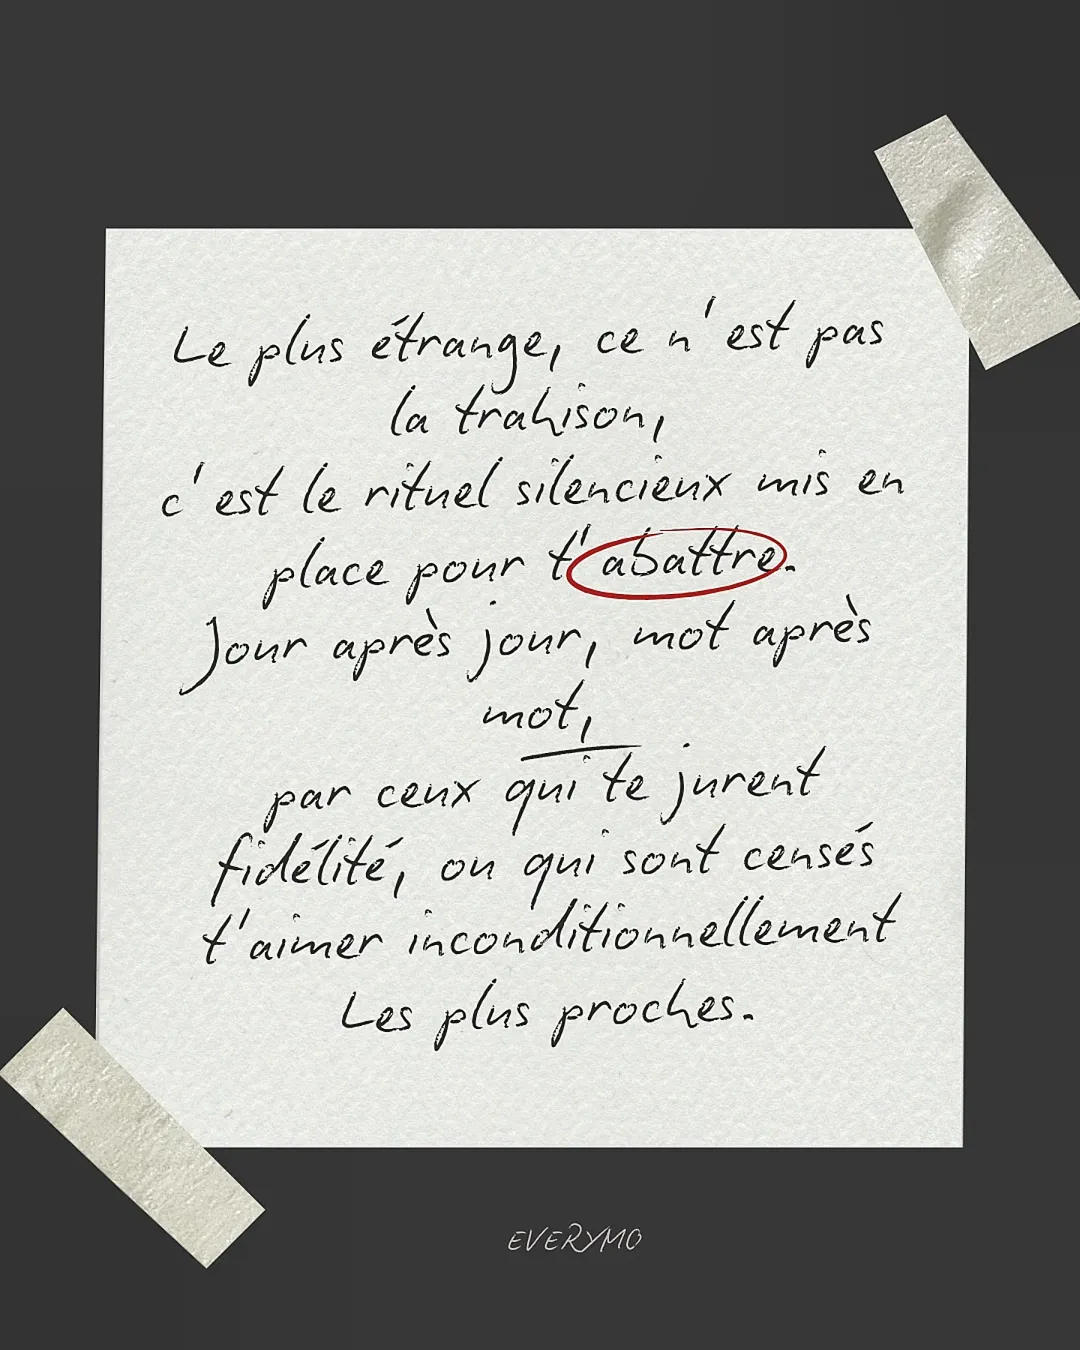 Le plus étrange, ce n'est pas
la trahison,
c'est le rituel silencieux mis en
place pour t'abattre.
Jour après jour, mot après
mot,
par ceux qui te jurent
fidélité, ou qui sont censés
t'aimer inconditionnellement
Les plus proches.
EVERYMO